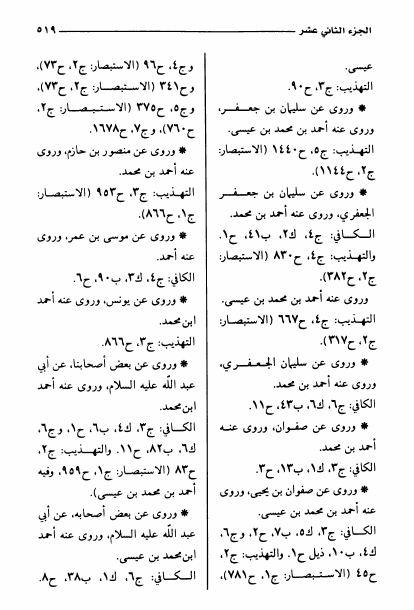 الجزء الثاني عشر ٥١٩
عيسى.
التهذيب: ج٣، ح٩٠.
* وروى عن سليمان بن جعفر، وروى عنه أحمد بن محمد بن عيسى.
التهذيب: ج٥، ح١٤٤٠ (الاستبصار:
ج٢، ح١١٤٤).
* وروى عن سليمان بن جعفر
الجعفري، وروى عنه أحمد بن محمد.
الكافي: ج٤، ك٢، ب٤١، ح١.
والتهذيب: ج٤، ح٨٣٠ (الاستبصار:
ج٢، ح٣٨٢).
وروى عنه أحمد بن محمد بن عيسى.
التهذيب: ج٤، ح٦٦٧ (الاستبصار:
ج٢، ح٣١٧).
* وروى عن سليمان الجعفري،
وروى عنه أحمد بن محمد.
الكافي: ج٦، ك٦، ب٤٣، ح١١.
* وروى عن صفوان، وروى عنه
أحمد بن محمد.
الكافي: ج٣، ك١، ب١٣، ح٣.
* وروى عن صفوان بن يحيى، وروى
عنه أحمد بن محمد بن عيسى.
الكافي: ج٣، ك٥، ب٧، ح٢، وج٦،
ك٤، ب١٠، ذيل ح١. والتهذيب: ج٢،
ح٤٥ (الاستبصار: ج١، ح٧٨١)،
وج٤، ح٩٦ (الاستبصار: ج٢، ح٧٣)،
وح٣٤١ (الاستبصار: ج٢، ح٧٣)،
وج٥، ح٣٧٥ (الاستبصار: ج٢،
ح٧٦٠)، وج٧، ح١٦٧٨.
* وروى عن منصور بن حازم، وروى
عنه أحمد بن محمد.
التهذيب: ج٣، ح٩٥٣ (الاستبصار:
ج١، ح٨٦٦).
* وروى عن موسى بن عمر، وروى
عنه أحمد.
الكافي: ج٤، ك٣، ب٩٠، ح٦.
* وروى عن يونس، وروى عنه أحمد
ابن محمد.
التهذيب: ج٣، ح٨٦٦.
* وروى عن بعض أصحابنا، عن أبي
عبد الله عليه السلام، وروى عنه أحمد
ابن محمد.
الكافي: ج٣، ك٤، ب٦، ح١، وج٦،
ك٦، ب٨٢، ح١١. والتهذيب: ج٢،
ح٨٣ (الاستبصار: ج١، ح٩٥٩، وفيه
أحمد بن محمد بن عيسى).
* وروى عن بعض أصحابه، عن أبي
عبد الله عليه السلام، وروى عنه أحمد
ابن محمد بن عيسى.
الكافي: ج٦، ك١، ب٣٨، ح٨.